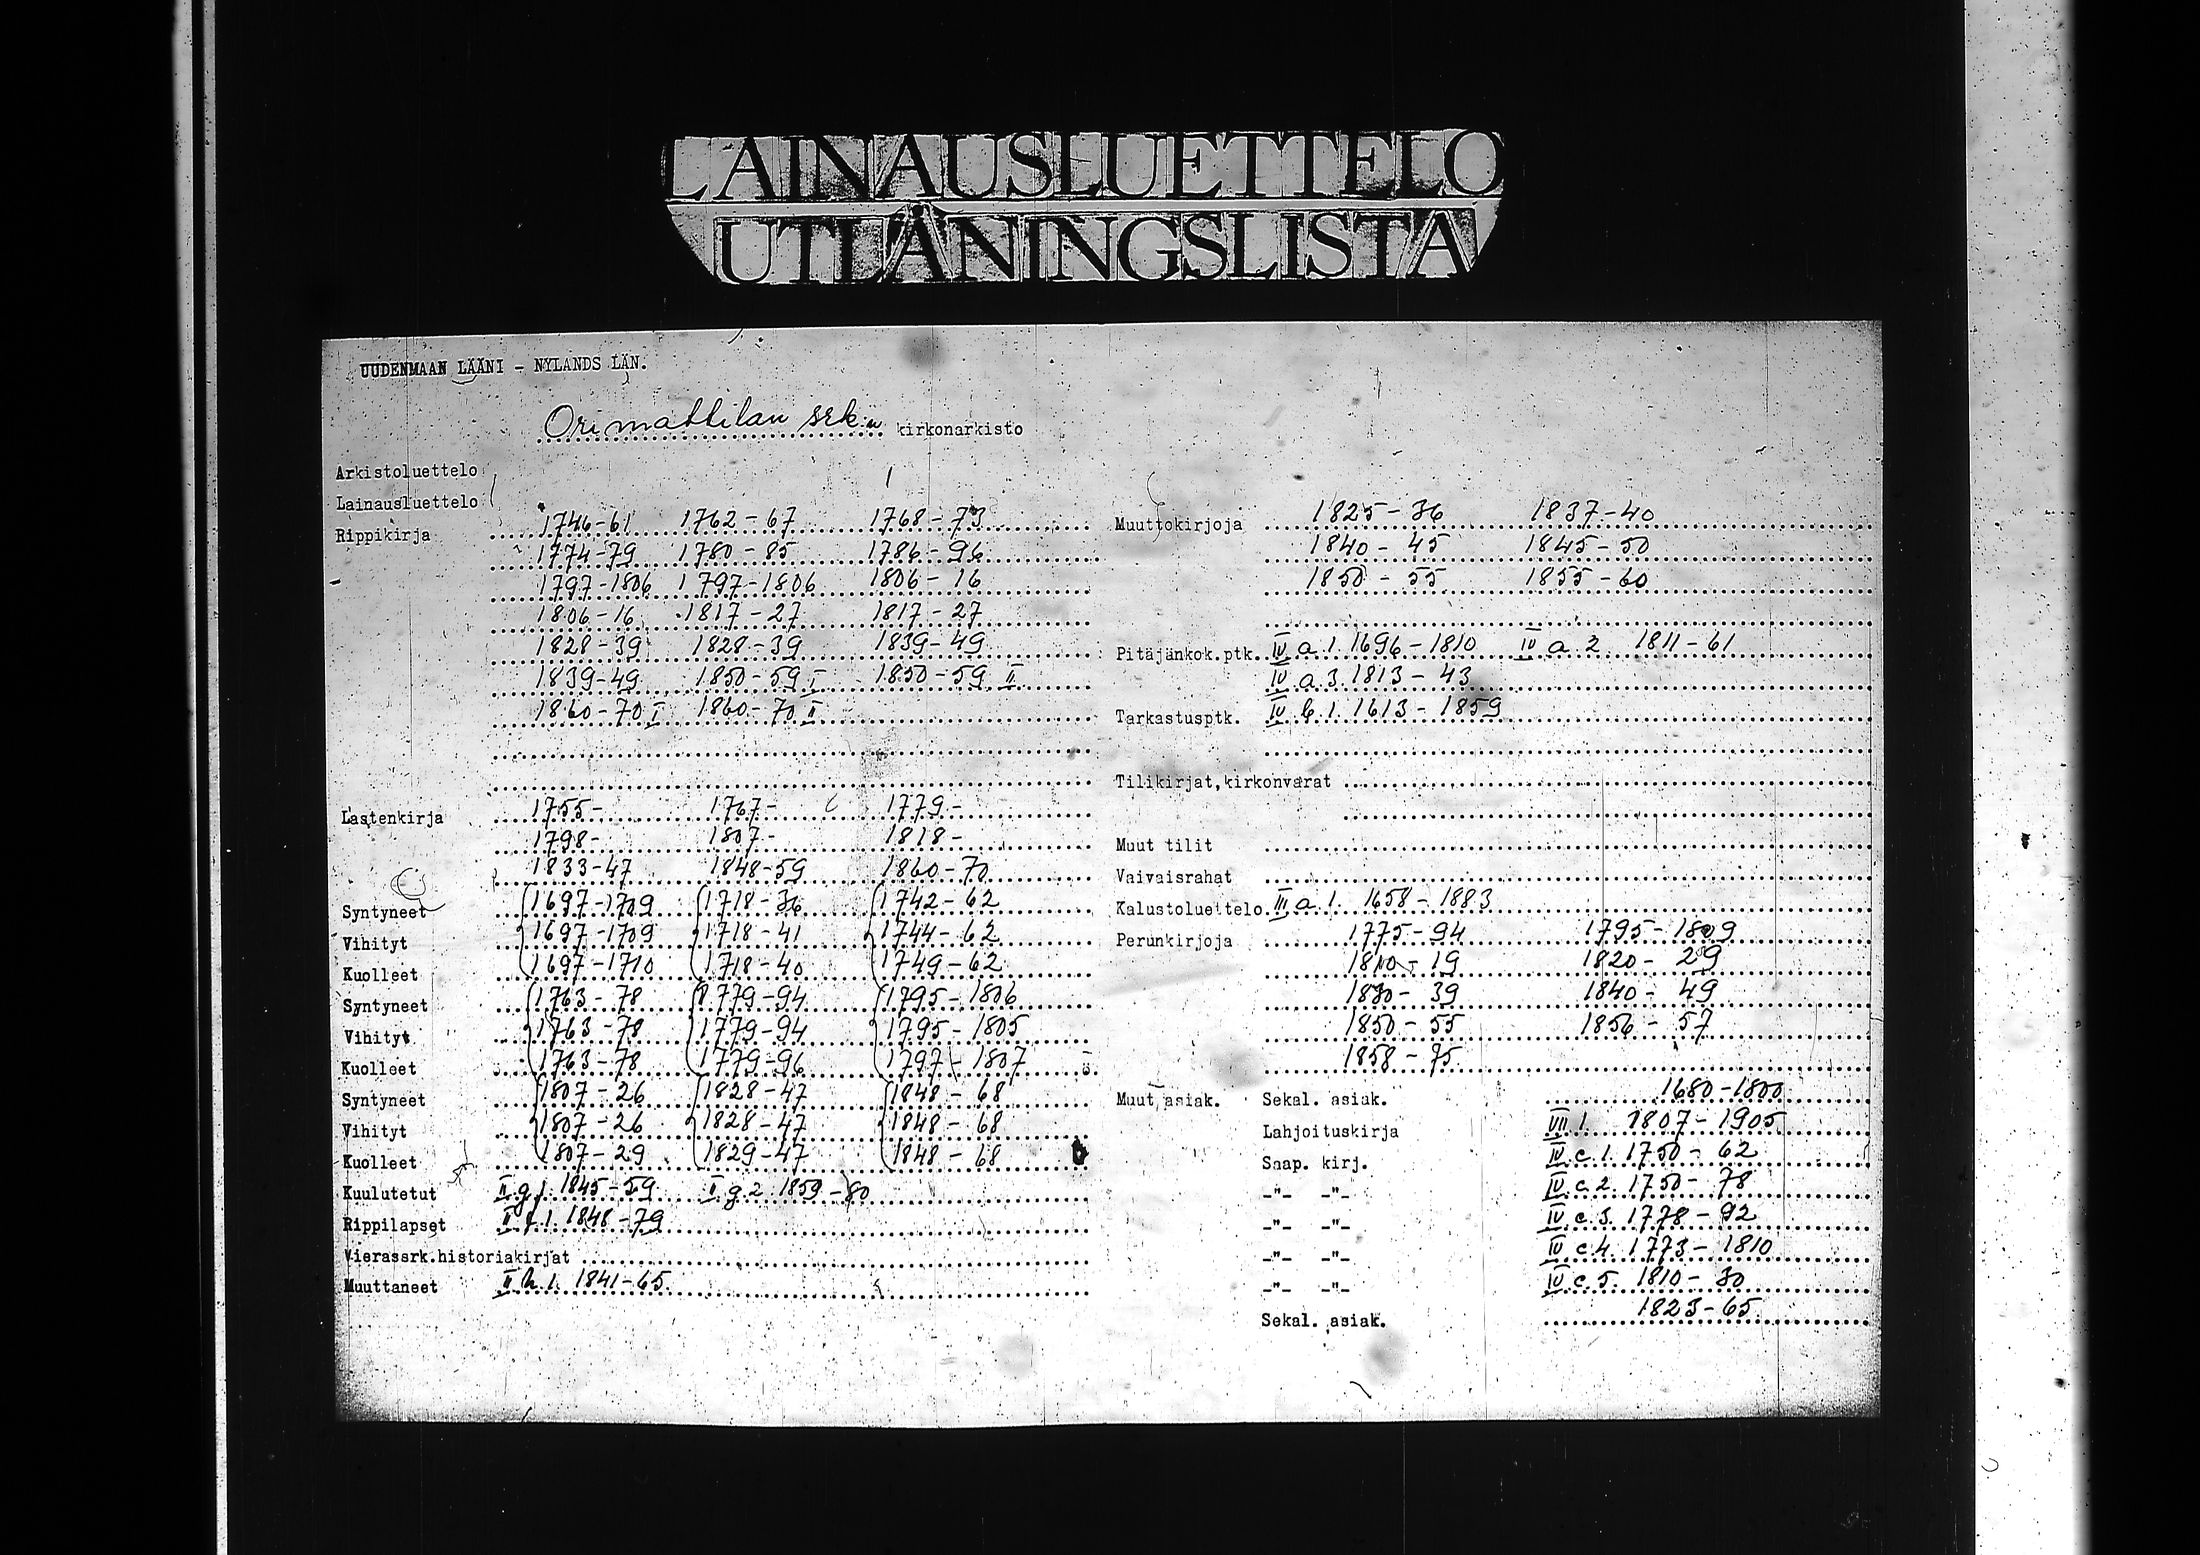 LAINAUSLUETTELO
UTLÅNINGSLISTA
UUDENMAAN LÄÄNI - NYLANDS LÄN.
Orimattilan srk:n kirkonarkisto
Arkistoluettelo
Lainausluettelo
Rippikirja 1746-61 1762-67 1768-73
1774-79 1780-85 1786-96
1797-1806 1797-1806 1806-16
1806-16 1817-27 1817-27
1828-39 1828-39 1839-49
1839-49 1850-59 I 1850-59 II
1860-70 I 1860-70 II
Lastenkirja 1755- 1767- 1779-
1798- 1807- 1818-
1833-47 1848-59 1860-70
Syntyneet 1697-1709 1718-36 1742-62
Vihityt 1697-1709 1718-41 1744-62
Kuolleet 1697-1710 1718-40 1749-62
Syntyneet 1763-78 1779-94 1795-1806
Vihityt 1763-78 1779-94 1795-1805
Kuolleet 1763-78 1779-96 1797-1807
Syntyneet 1807-26 1828-47 1848-68
Vihityt 1807-26 1828-47 1848-68
Kuolleet 1807-29 1829-47 1848-68
Kuulutetut II g 1. 1845-59 II g 2 1859-80
Rippilapset II f. 1. 1848-79
Vierassrk.historiakirjat
Muuttaneet II h. 1. 1841-65
Muuttokirjoja 1825-36 1837-40
1840-45 1845-50
1850-55 1855-60
Pitäjänkok.ptk. IV a 1. 1696-1810 IV a 2 1811-61
IV a 3. 1813-43
Tarkastusptk. IV b 1. 1613-1859
Tilikirjat,kirkonvarat
Muut tilit
Vaivaisrahat
Kalustoluettelo III a 1. 1658-1883
Perunkirjoja 1775-94 1795-1809
1810-19 1820-29
1830-39 1840-49
1850-55 1856-57
1858-75
Muut asiak. Sekal. asiak. 1680-1800
Lahjoituskirja VII 1. 1807-1905
Saap. kirj. IV c 1. 1750-62
-"- -"- IV c 2. 1750-78
-"- -"- IV c 3. 1778-92
-"- -"- IV c 4. 1773-1810
-"- -"- IV c 5. 1810-30
Sekal. asiak. 1823-65